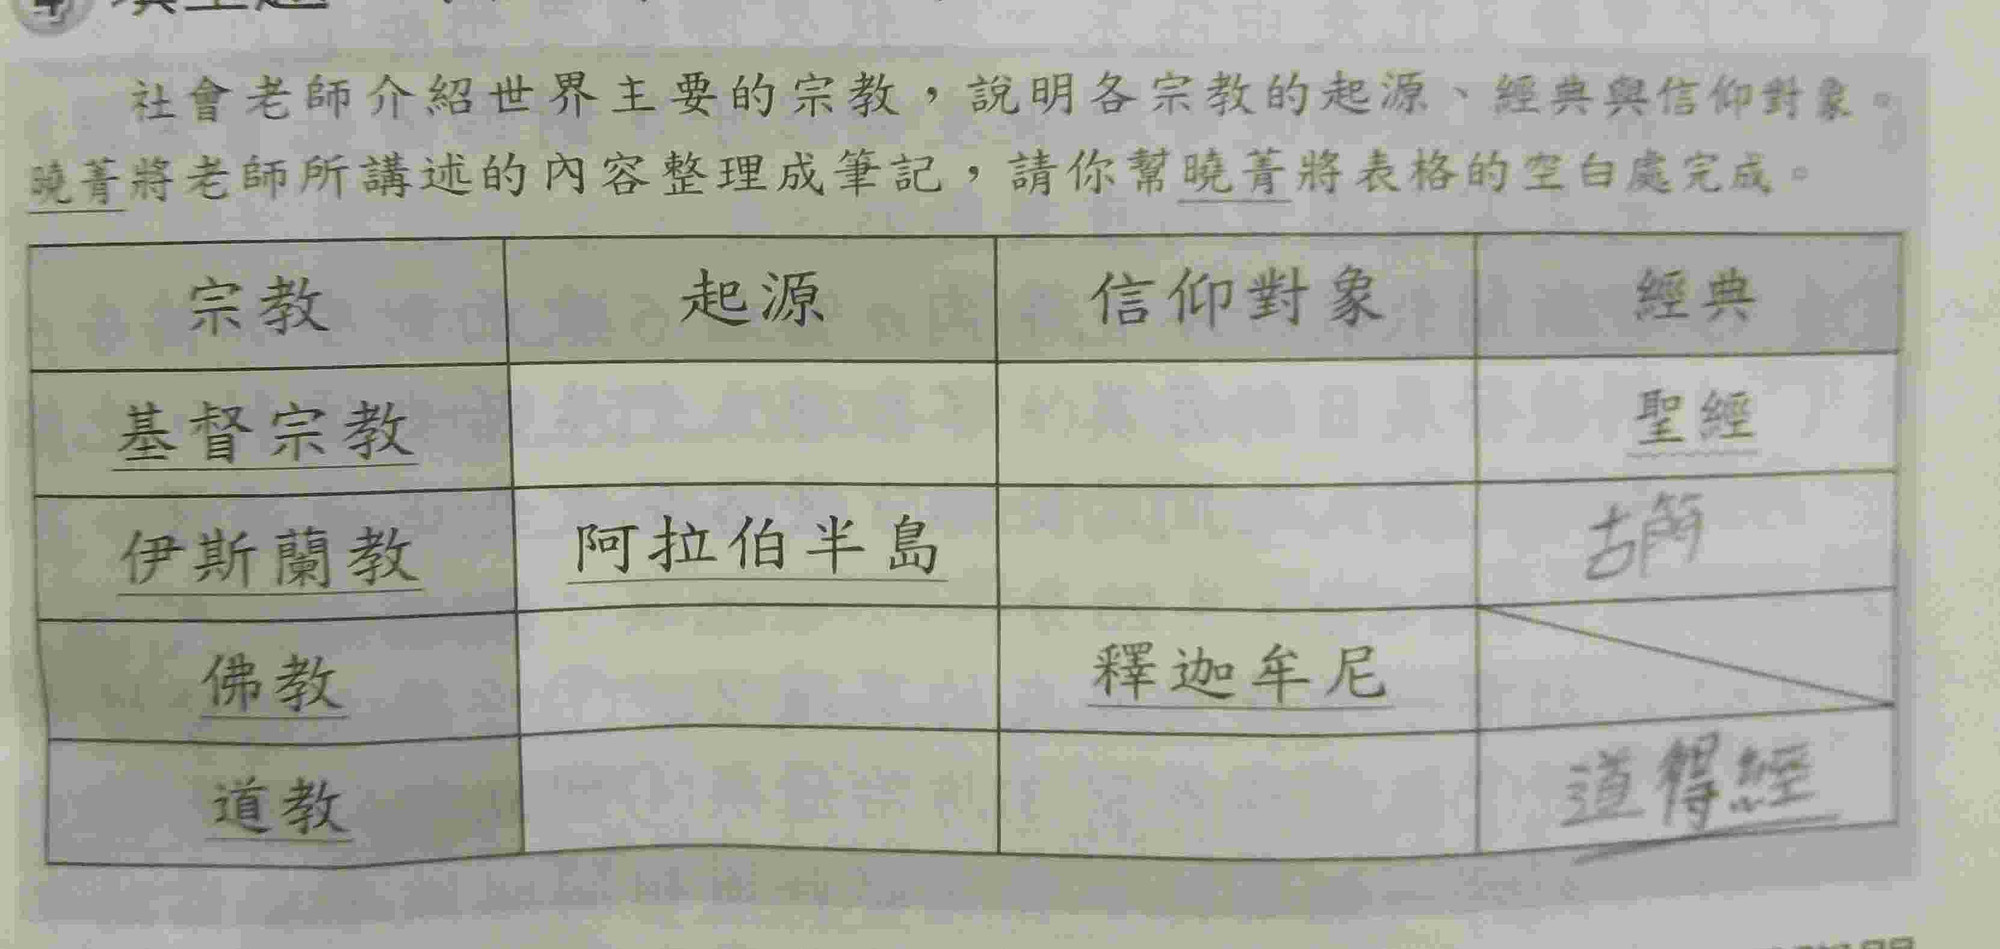 社會老師介紹世界主要的宗教，說明各宗教的起源、經典與信仰對象。
曉菁將老師所講述的內容整理成筆記，請你幫曉菁將表格的空白處完成。
宗教 起源 信仰對象 經典
基督宗教 聖經
伊斯蘭教 阿拉伯半島 古
佛教 釋迦牟尼
道教 道得經